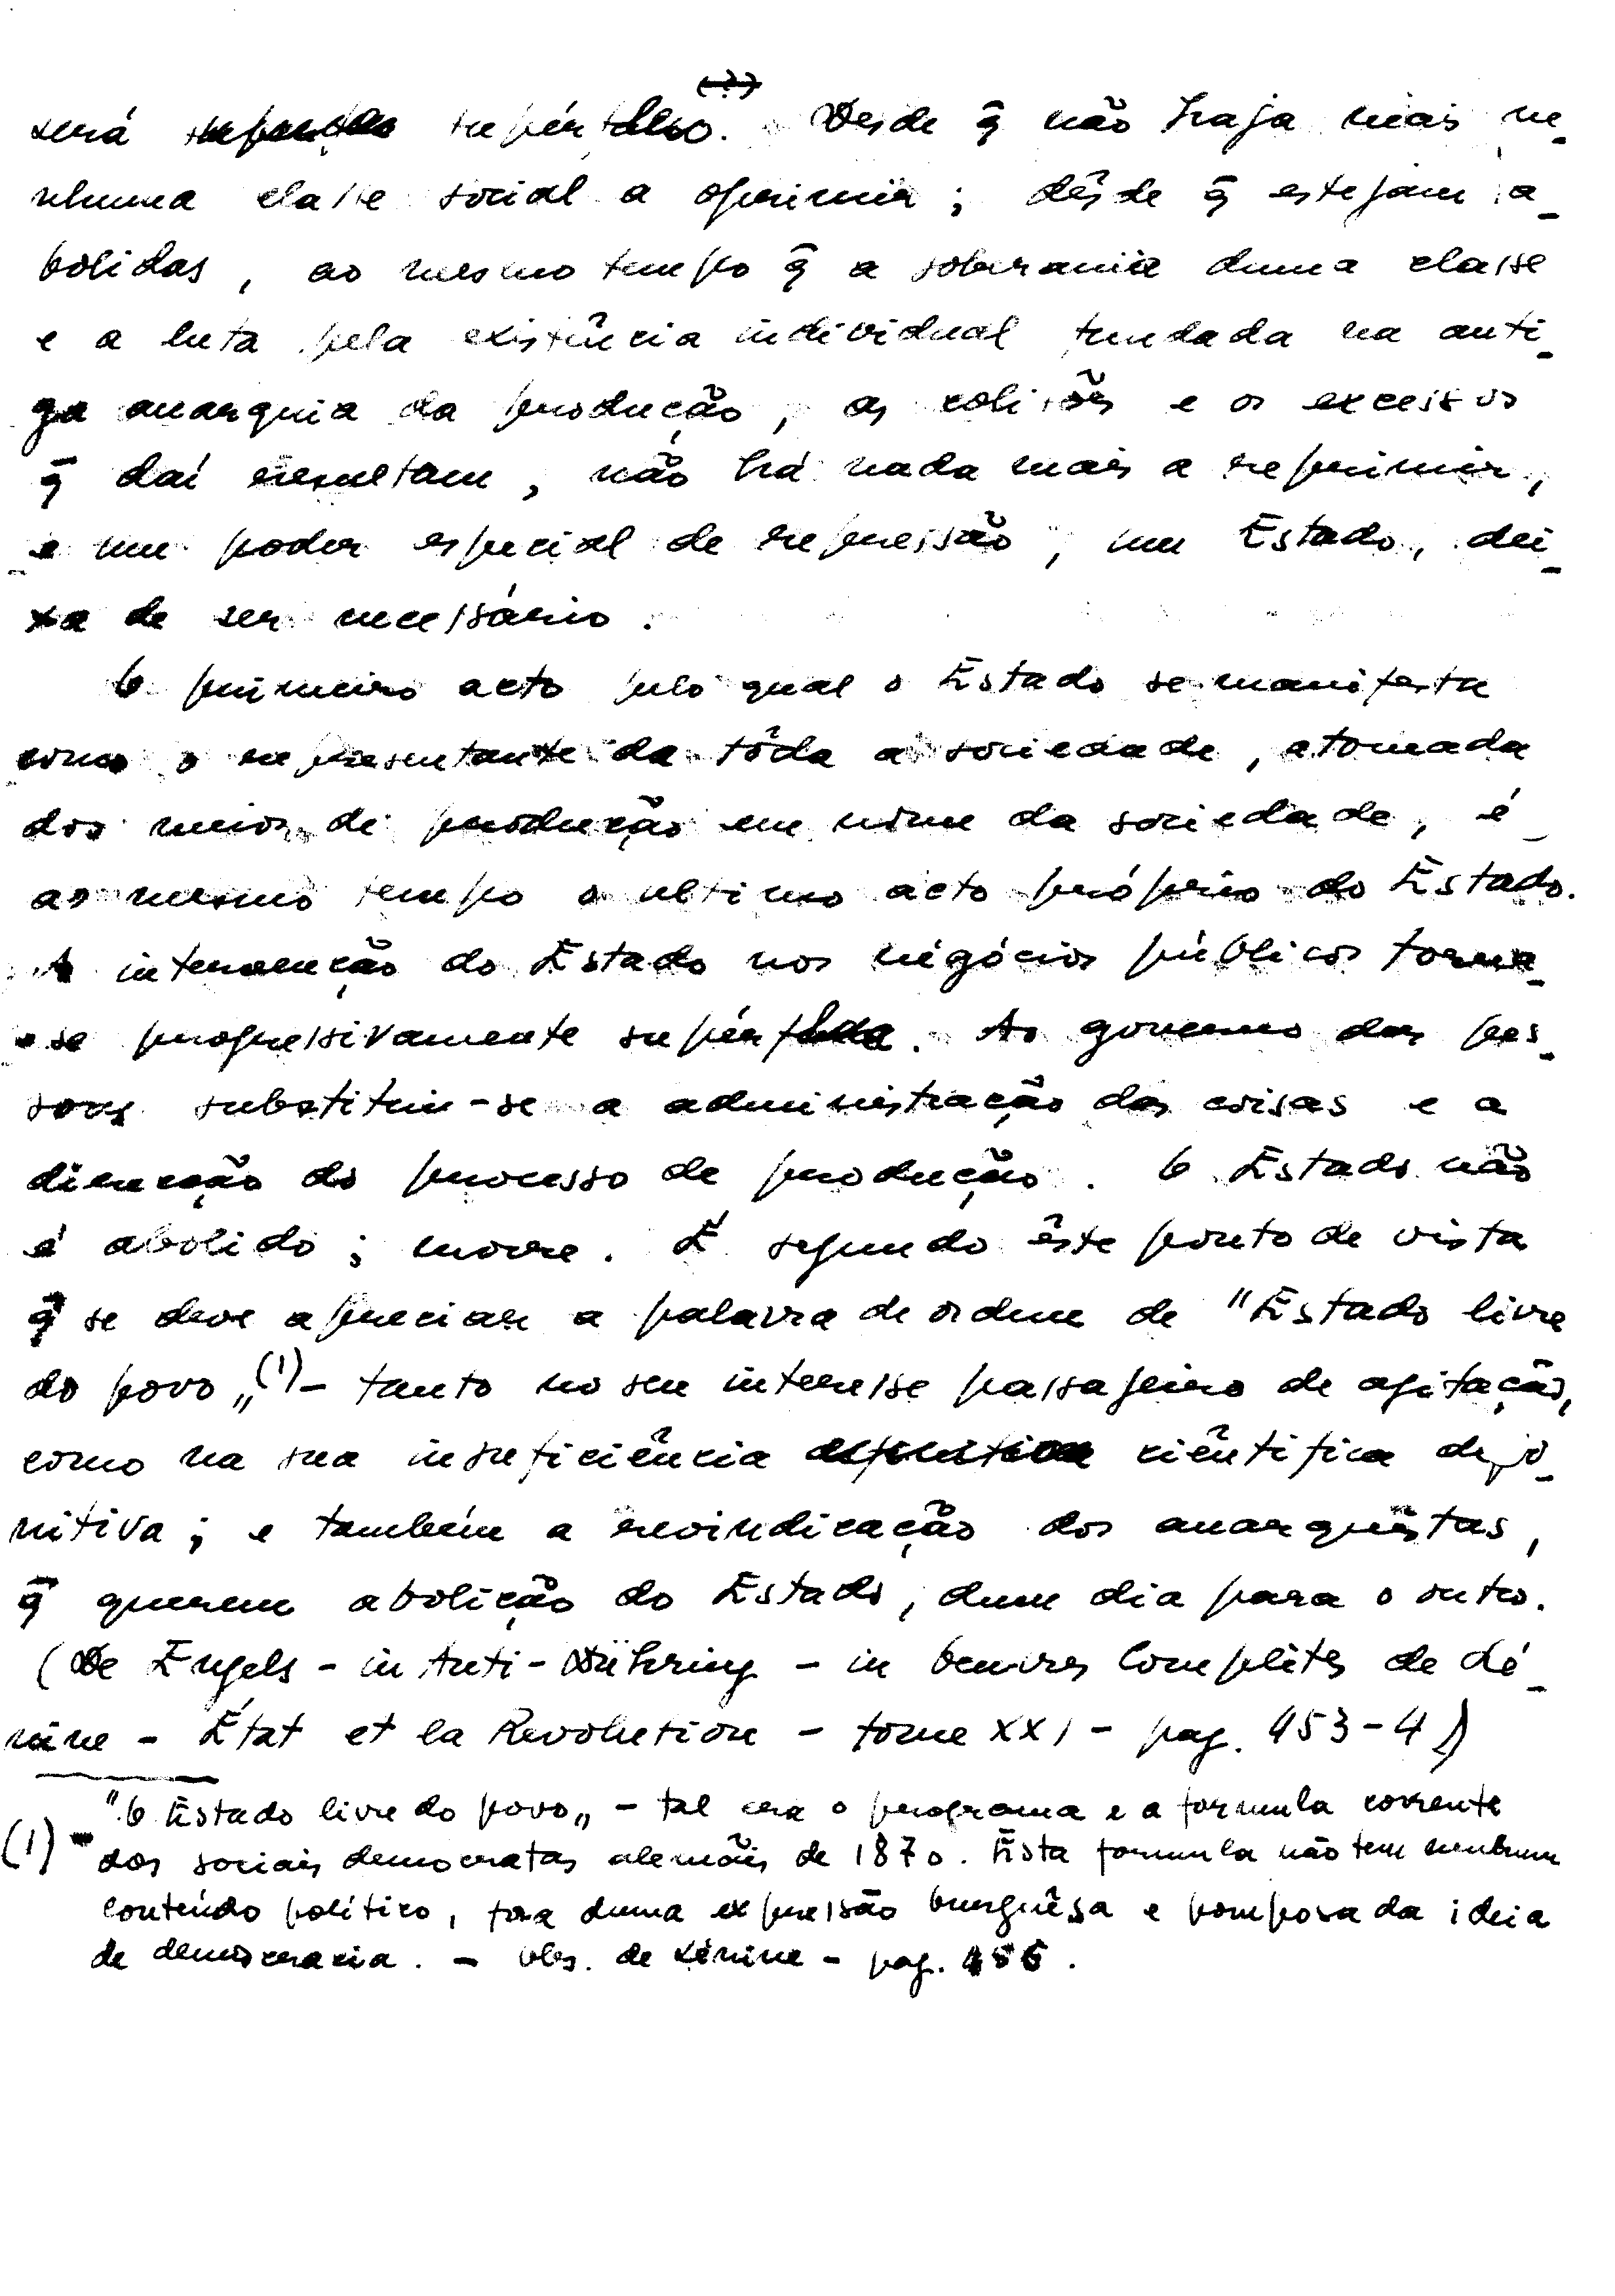 será supérfluo. Desde q̄ não haja mais ne-
nhuma classe social a oprimir; dêsde q̄ estejam a-
bolidas, ao mesmo tempo q̄ a soberania duma classe
e a luta pela existência individual fundada na anti-
ga anarquia da produção, as colisões e os excessos
q̄ daí resultam, não há nada mais a reprimir,
e um poder especial de repressão, um Estado, dei-
xa de ser necessário.
O primeiro acto pelo qual o Estado se manifesta
como o representante da tôda a sociedade, a tomada
dos meios de produção em nome da sociedade, é
ao mesmo tempo o ultimo acto próprio do Estado.
A intervenção do Estado nos negócios públicos torna-
-se progressivamente supérflua. Ao governo das pes-
soas substitui-se a administração das coisas e a
direcção do processo de produção. O Estado não
é abolido; morre. É segundo êste ponto de vista
q̄ se deve apreciar a palavra de ordem de "Estado livre
do povo„(1) - tanto no seu interesse passageiro de agitação,
como na sua insuficiência ciêntifica defi-
nitiva; e também a reivindicação dos anarquistas,
q̄ querem abolição do Estado, dum dia para o outro.
(De Engels - in Anti-Dühring - in Oeuvres Complètes de Lé-
nine - État et la Revolution - tome XXI - pag. 453-4)
"O Estado livre do povo„ - tal era o programa e a formula corrente
(1) - dos sociais democratas alemãis de 1870. Esta formula não tem nenhum
conteúdo político, fora duma expressão burguêsa e pomposa da ideia
de democracia. - obs. de Lénine - pag. 455.